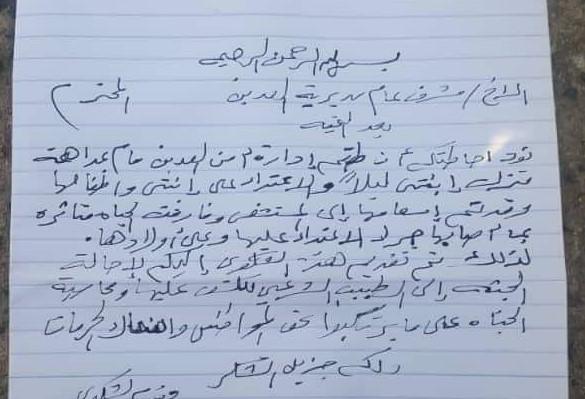 بسم الله الرحمن الرحيم
الأخ/ مشرف عام مديرية العدين المحترم
بعد التحية
نود احاطتكم أن طقم إدارة أمن العدين قام بمداهمة
منزلت رابنتي ليلاً والاعتداء على رابنتي واطفالها
وقد تم إسعافها إلى المستشفى وفارقت الحياه متاثره
بما أصابها جراء الاعتداء عليها وعلى أولادها.
لذلك تم تقديم هذه الشكوى إليكم لإحالة
الجثه إلى الطبيب الشرعي للكشف عليها ومحاسبة
الجناه على ما يرتكبوا بحق المواطنين وانتهاك الحرمات
ولكم جزيل الشكر